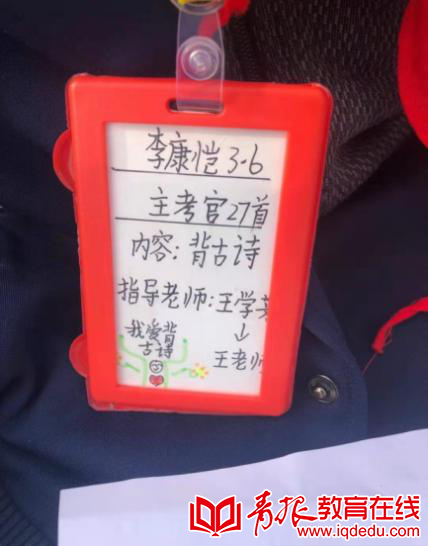 李康恺3-6
主考官27首
内容:背古诗
指导老师:王学
↓
王老师
我爱背
古诗
青报教育在线
www.iqdedu.com